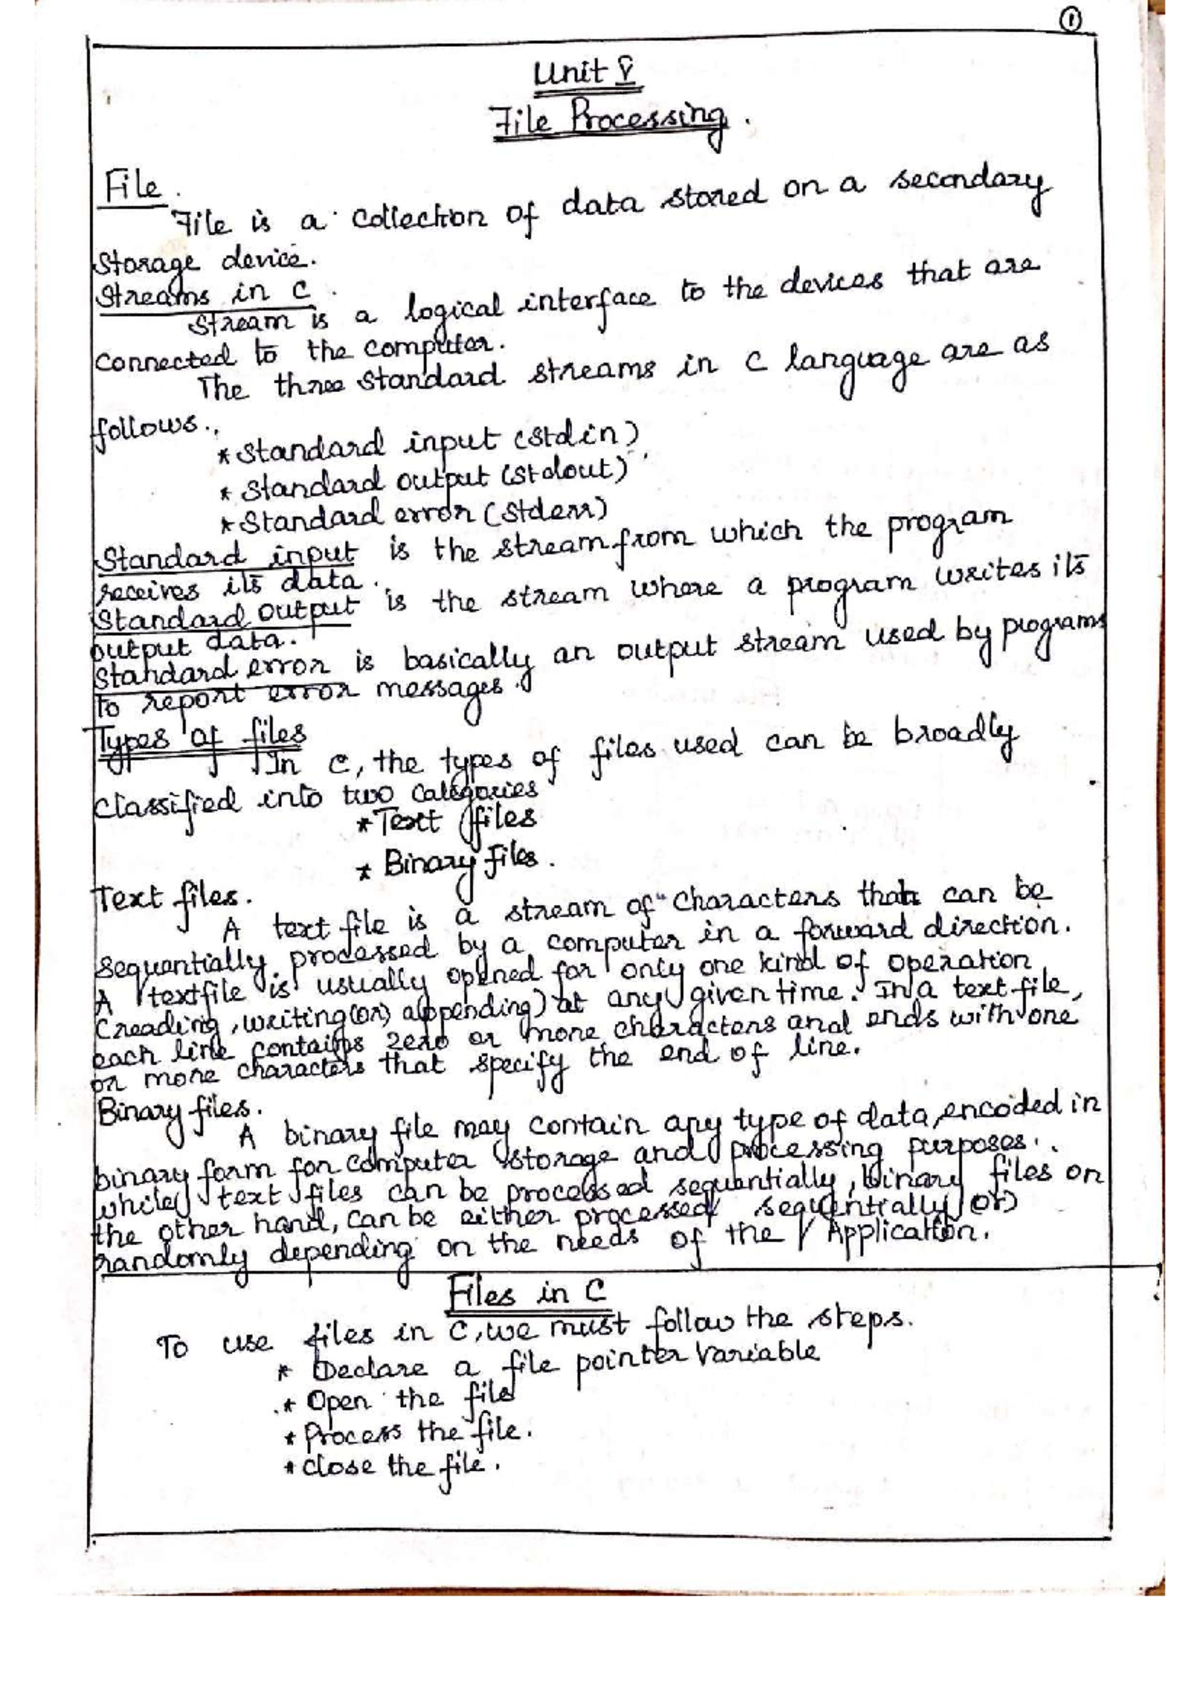 ①
Unit V
File Processing.
File.
File is a collection of data stored on a secondary
storage device.
Streams in C.
Stream is a logical interface to the devices that are
connected to the computer.
The three standard streams in C language are as
follows.,
* Standard input (stdin)
* Standard output (stdout)
* Standard error (stderr)
Standard input is the stream from which the program
receives its data.
Standard output is the stream where a program writes its
output data.
Standard error is basically an output stream used by programs
to report error messages.
Types of files
In C, the types of files used can be broadly
classified into two categories
* Text files
* Binary files.
Text files.
A text file is a stream of characters that can be
sequentially processed by a computer in a forward direction.
A textfile is usually opened for only one kind of operation
(reading, writing (or) appending) at any given time. In a text file,
each line contains zero or more characters and ends with one
or more characters that specify the end of line.
Binary files.
A binary file may contain any type of data, encoded in
binary form for computer storage and processing purposes.
while text files can be processed sequentially, binary files on
the other hand, can be either processed sequentially (or)
randomly depending on the needs of the Application.
Files in C
To use files in C, we must follow the steps.
* Declare a file pointer variable
* Open the file
* Process the file.
* close the file.